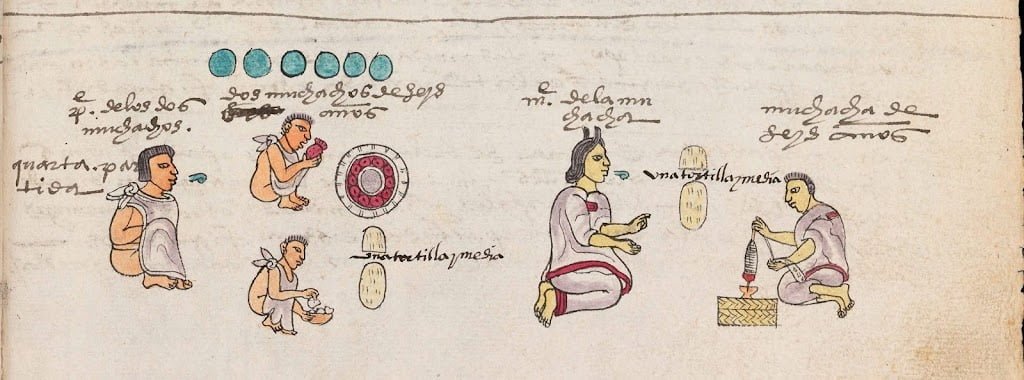 pe. de los dos
muchachos.
quarta. par
tida
dos muchachos de seys
años
una tortilla y media
me. de la mu
chacha
una tortilla y media
muchacha de
seys años